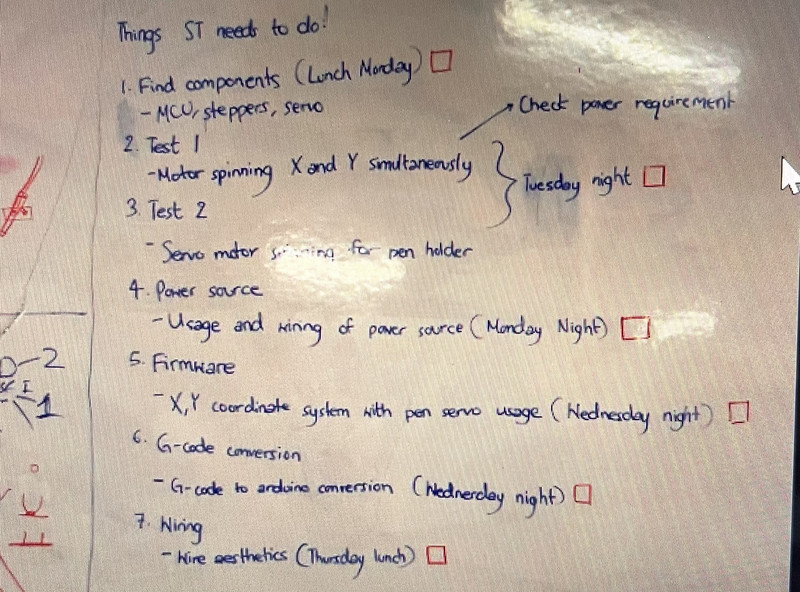 Things ST needs to do!
1. Find components (Lunch Monday)
- MCU, steppers, servo
Check power requirement
2. Test 1
- Motor spinning X and Y simultaneously
Tuesday night
3. Test 2
- Servo motor spinning for pen holder
4. Power source
- Usage and wiring of power source (Monday Night)
5. Firmware
- X,Y coordinate system with pen servo usage (Wednesday night)
6. G-code conversion
- G-code to arduino conversion (Wednesday night)
7. Wiring
- Wire aesthetics (Thursday lunch)
D-2
I
1